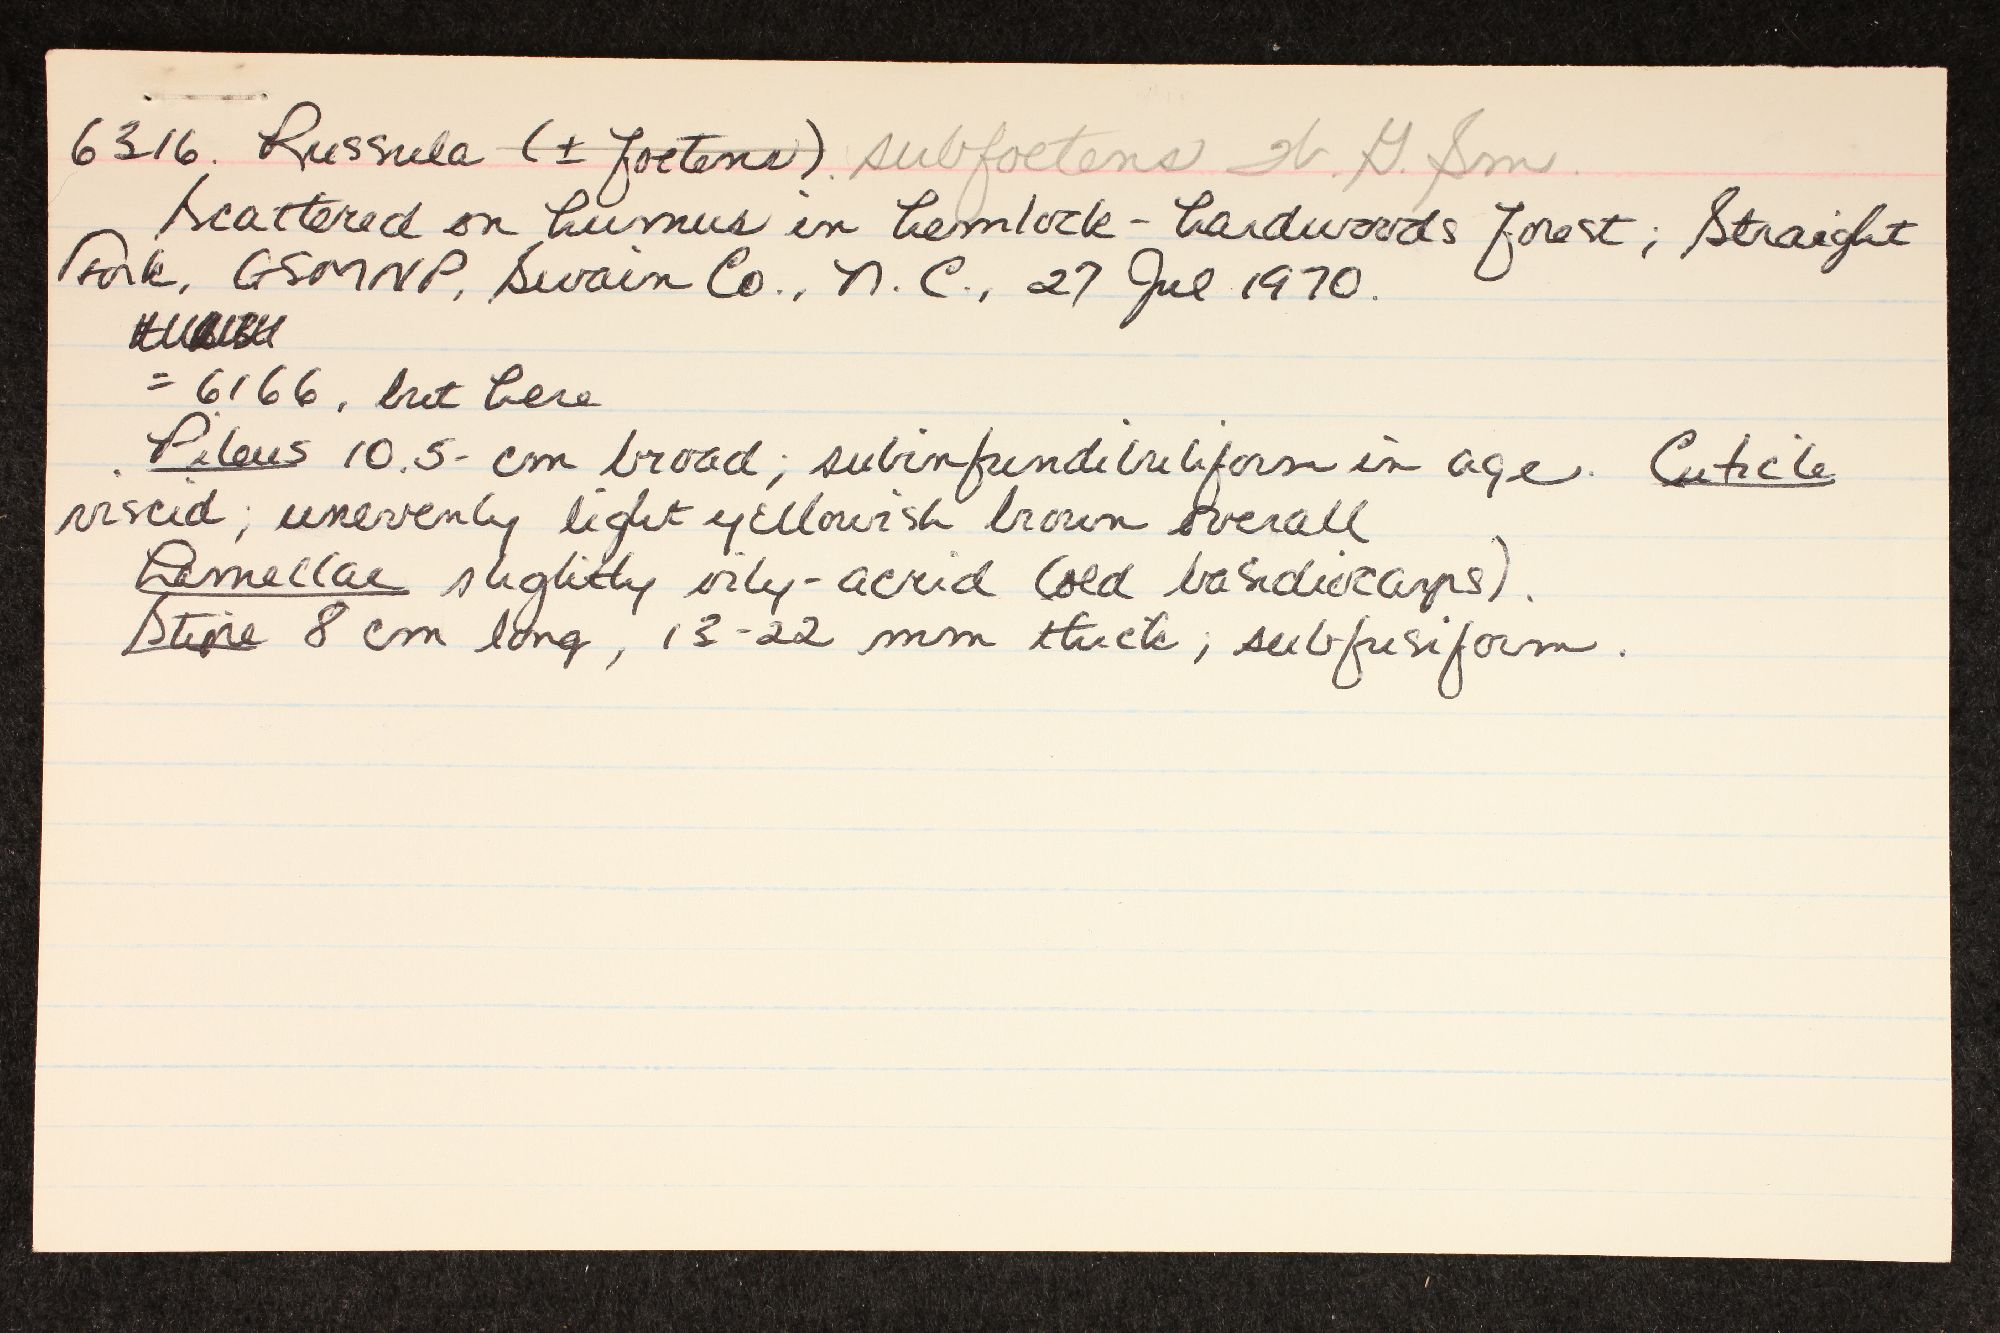 6316. Russula (± foetens). subfoetens W. G. Sm.
Scattered on humus in hemlock-hardwoods forest; Straight
Fork, GSMNP, Swain Co., N.C., 27 Jul 1970.
= 6166, but here
Pileus 10.5- cm broad; subinfundibuliform in age. Cuticle
viscid; unevenly light yellowish brown overall
Lamellae slightly oily-acrid (old basidiocarps).
Stipe 8 cm long, 13-22 mm thick; subfusiform.